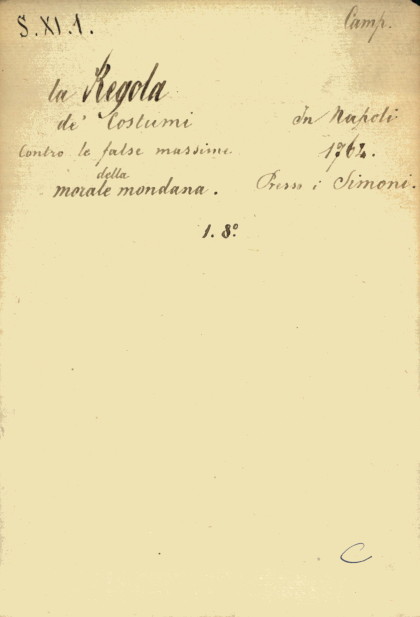 S. XI. 1.
Camp.
la Regola
de' Costumi
Contro le false massime
della
morale mondana.
In Napoli
Presso i Simoni.
1. 8º
C